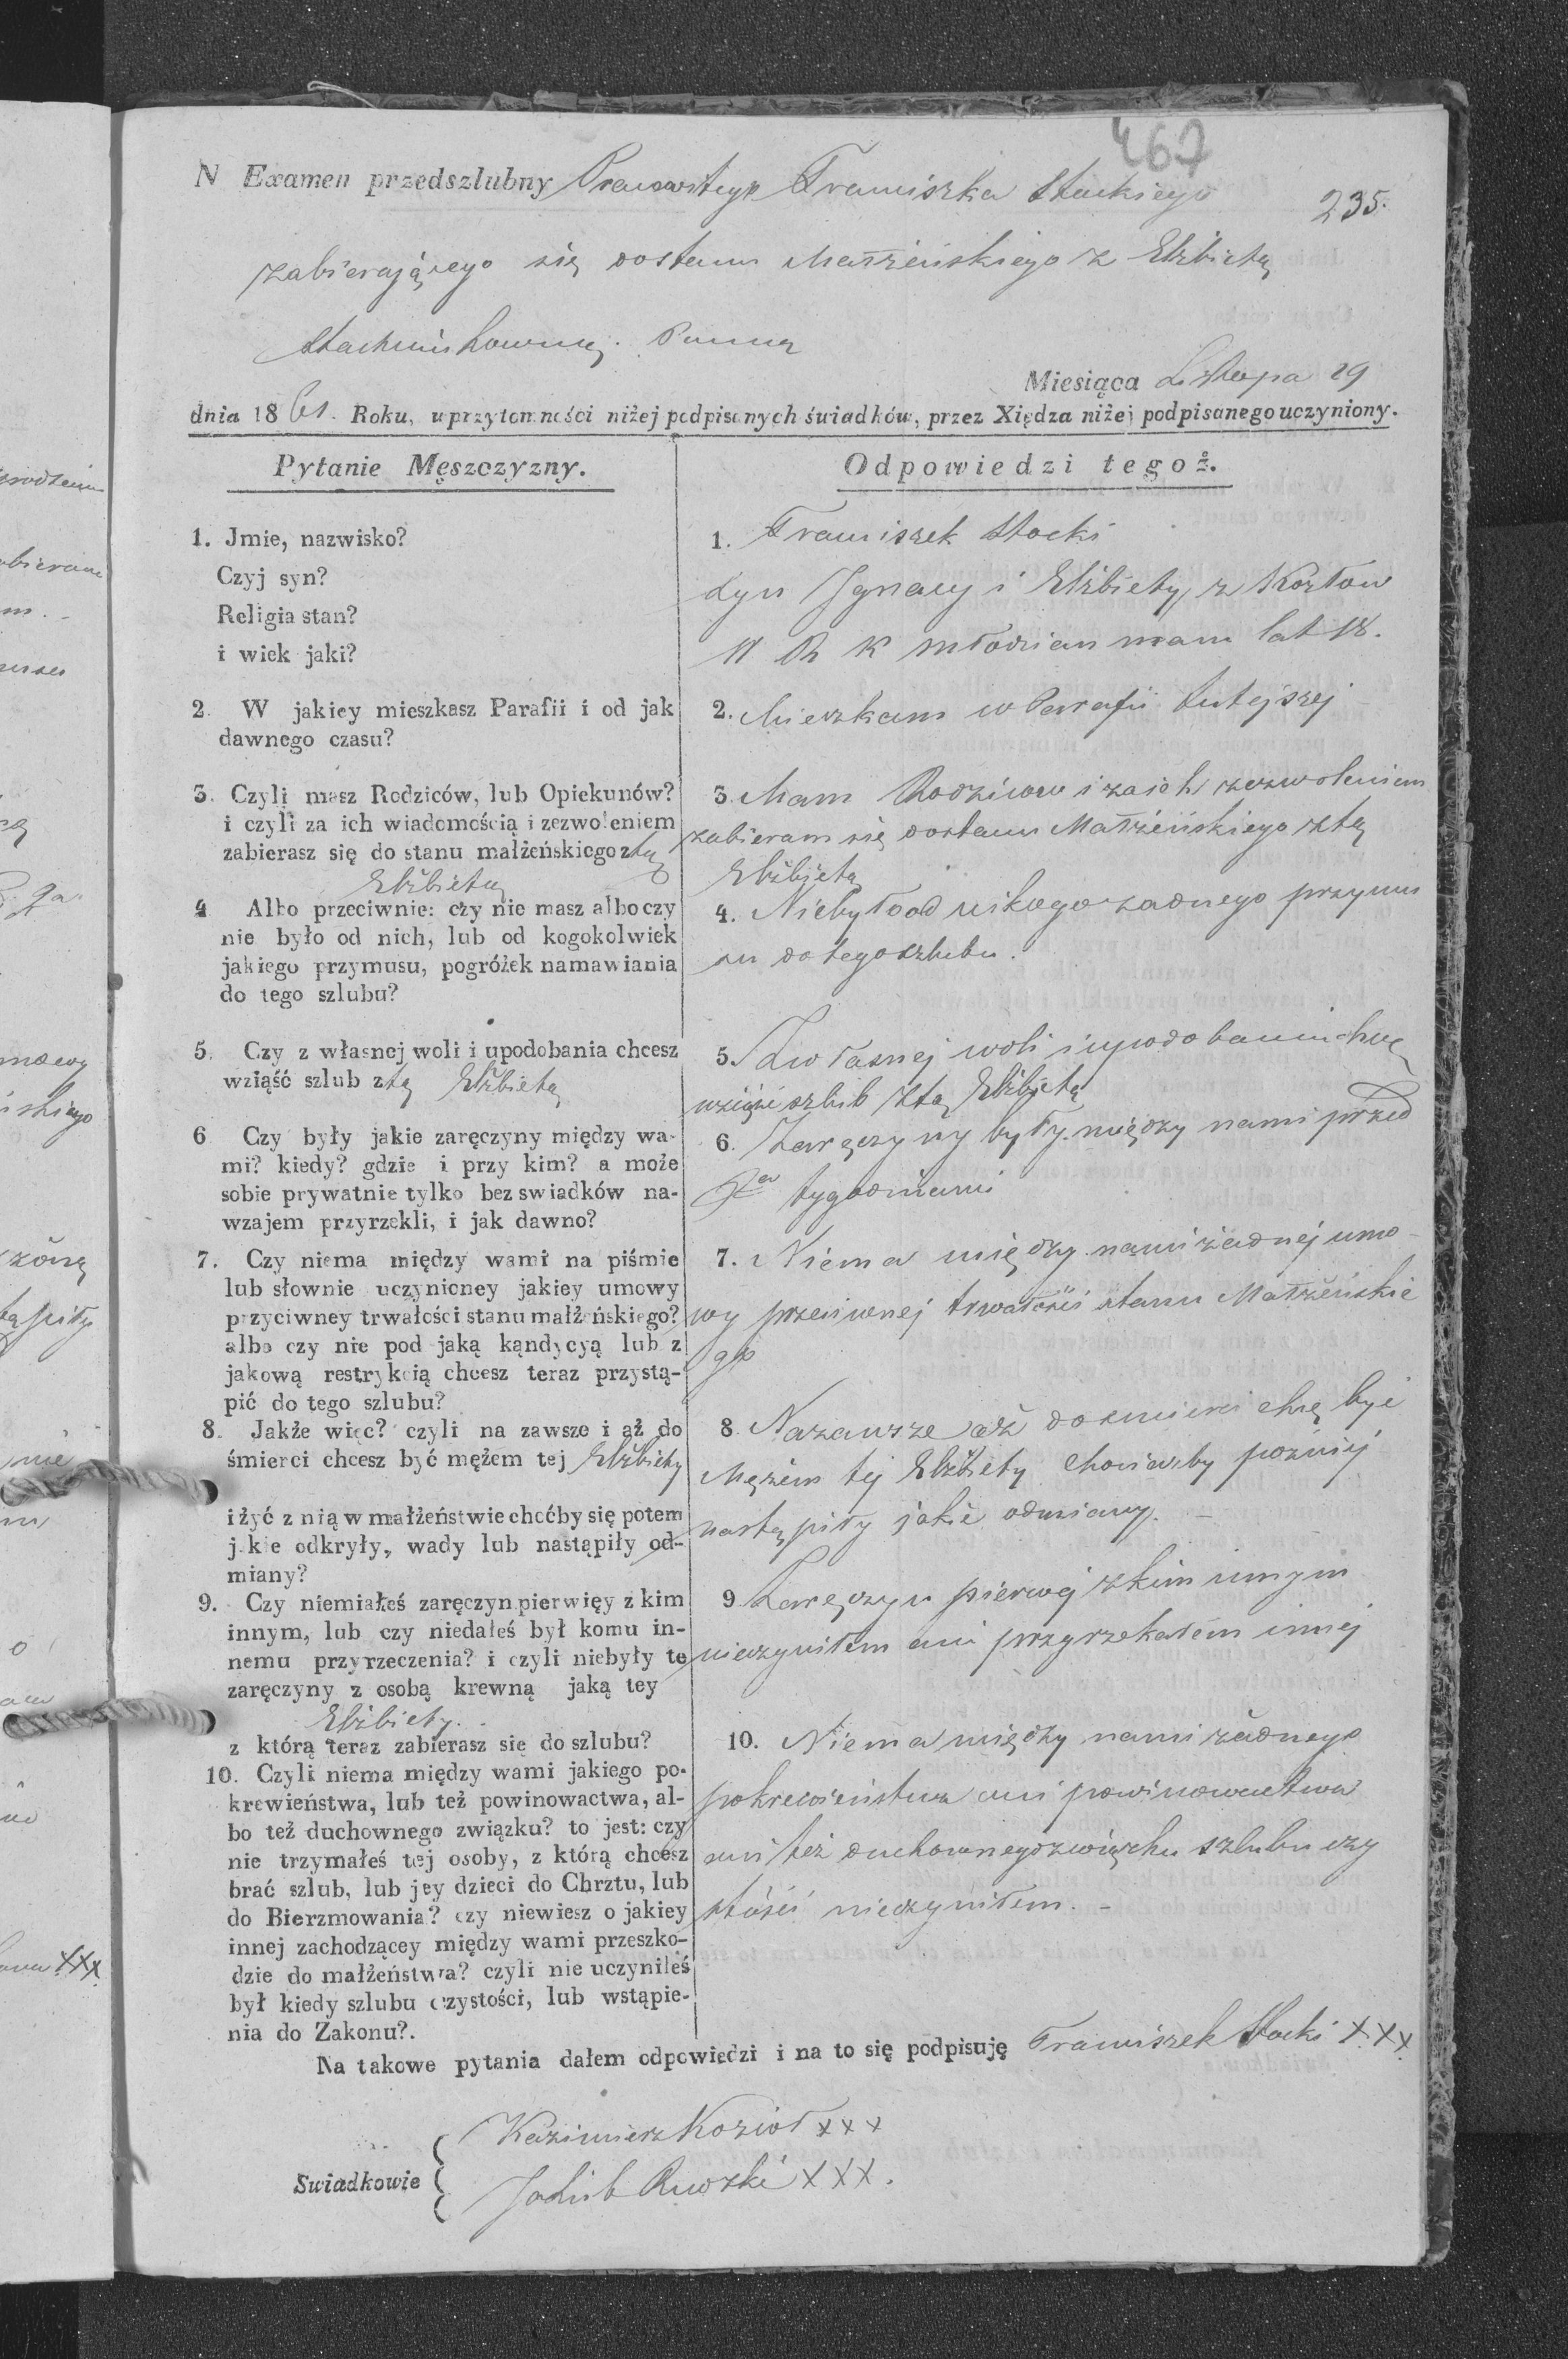 467
N Examen przedszlubny Pracowitego Franciszka Stockiego
235.
zabierającego się dostanu Małżeńskiego z Elżbietą
Panną
Miesiąca Listopa 29
dnia 1861. Roku, w przytomności niżej podpisanych świadków, przez Xiędza niżej podpisanego uczyniony.
Pytanie Męszczyzny.
Odpowiedzi tegoż.
1. Jmie, nazwisko?
Czyj syn?
Religia stan?
i wiek jaki?
1. Franciszek Stocki
Syn Ignacy i Elżbiety z Kozłow
W R K młodzian mam lat 18.
2. W jakiey mieszkasz Parafii i od jak
dawnego czasu?
2. Mieszkam w Parafii tutejszej
3. Czyli masz Rodziców, lub Opiekunów?
i czyli za ich wiadomością i zezwoleniem
zabierasz się do stanu małżeńskiego z tą
Elżbietą
3. Mam Rodzicow i zaich zezwoleniem
zabieram się dostanu Małżeńskiego ztą
Elżbietą
4. Albo przeciwnie: czy nie masz albo czy
nie było od nich, lub od kogokolwiek
jakiego przymusu, pogróżek namawiania
do tego szlubu?
4. Niebyło od nikogo zadnego przymu
su do tego szlubu.
5. Czy z własnej woli i upodobania chcesz
wziąść szlub ztą Elżbietą
5. Zwłasnej woli i upodobania chcę
wziąść szlub ztą Elżbietą
6 Czy były jakie zaręczyny między wa-
mi? kiedy? gdzie i przy kim? a może
sobie prywatnie tylko bez swiadków na-
wzajem przyrzekli, i jak dawno?
6. Zaręczyny były między nami przed
tygodniami
7. Czy niema między wami na piśmie
lub słownie uczynioney jakiey umowy
przyciwney trwałości stanu małżeńskiego?
albo czy nie pod jaką kąndycyą lub z
jakową restrykcią chcesz teraz przystą-
pić do tego szlubu?
7. Niema między nami żadnej umo-
wy przeciwnej trwałości stanu Małżeńskie
go
8. Jakże więc? czyli na zawsze i aż do
śmierci chcesz być mężem tej Elżbiety
i żyć z nią w małżeństwie choćby się potem
jakie odkryły, wady lub nastąpiły od-
miany?
8. Nazawsze aż dosmierci chcę być
Mężem tej Elżbiety chociażby poźniej
nastąpiły jakie odmiany. -
9. Czy niemiałeś zaręczyn pierwięy z kim
innym, lub czy niedałeś był komu in-
nemu przyrzeczenia? i czyli niebyły te
zaręczyny z osobą krewną jaką tey
Elżbiety.
z którą teraz zabierasz się do szlubu?
9 Zaręczyn pierwej zkim innym
nieczyniłem ani przyrzekałem innej
10. Czyli niema między wami jakiego po-
krewieństwa, lub też powinowactwa, al-
bo też duchownego związku? to jest: czy
nie trzymałeś tej osoby, z którą chcesz
brać szlub, lub jey dzieci do Chrztu, lub
do Bierzmowania? czy niewiesz o jakiey
innej zachodzącey między wami przeszko-
dzie do małżeństwa? czyli nie uczyniłeś
był kiedy szlubu czystości, lub wstąpie-
nia do Zakonu?.
10. Niema między nami żadnego
pokrewieństwa ani powinowactwa
ani też duchownego związku szlubu czy
stości nieczyniłem. -
Na takowe pytania dałem odpowiedzi i na to się podpisuję Franciszek Stocki XXX
Swiadkowie
Kazimierz Kozioł xxx
Jakub Ruszki XXX.